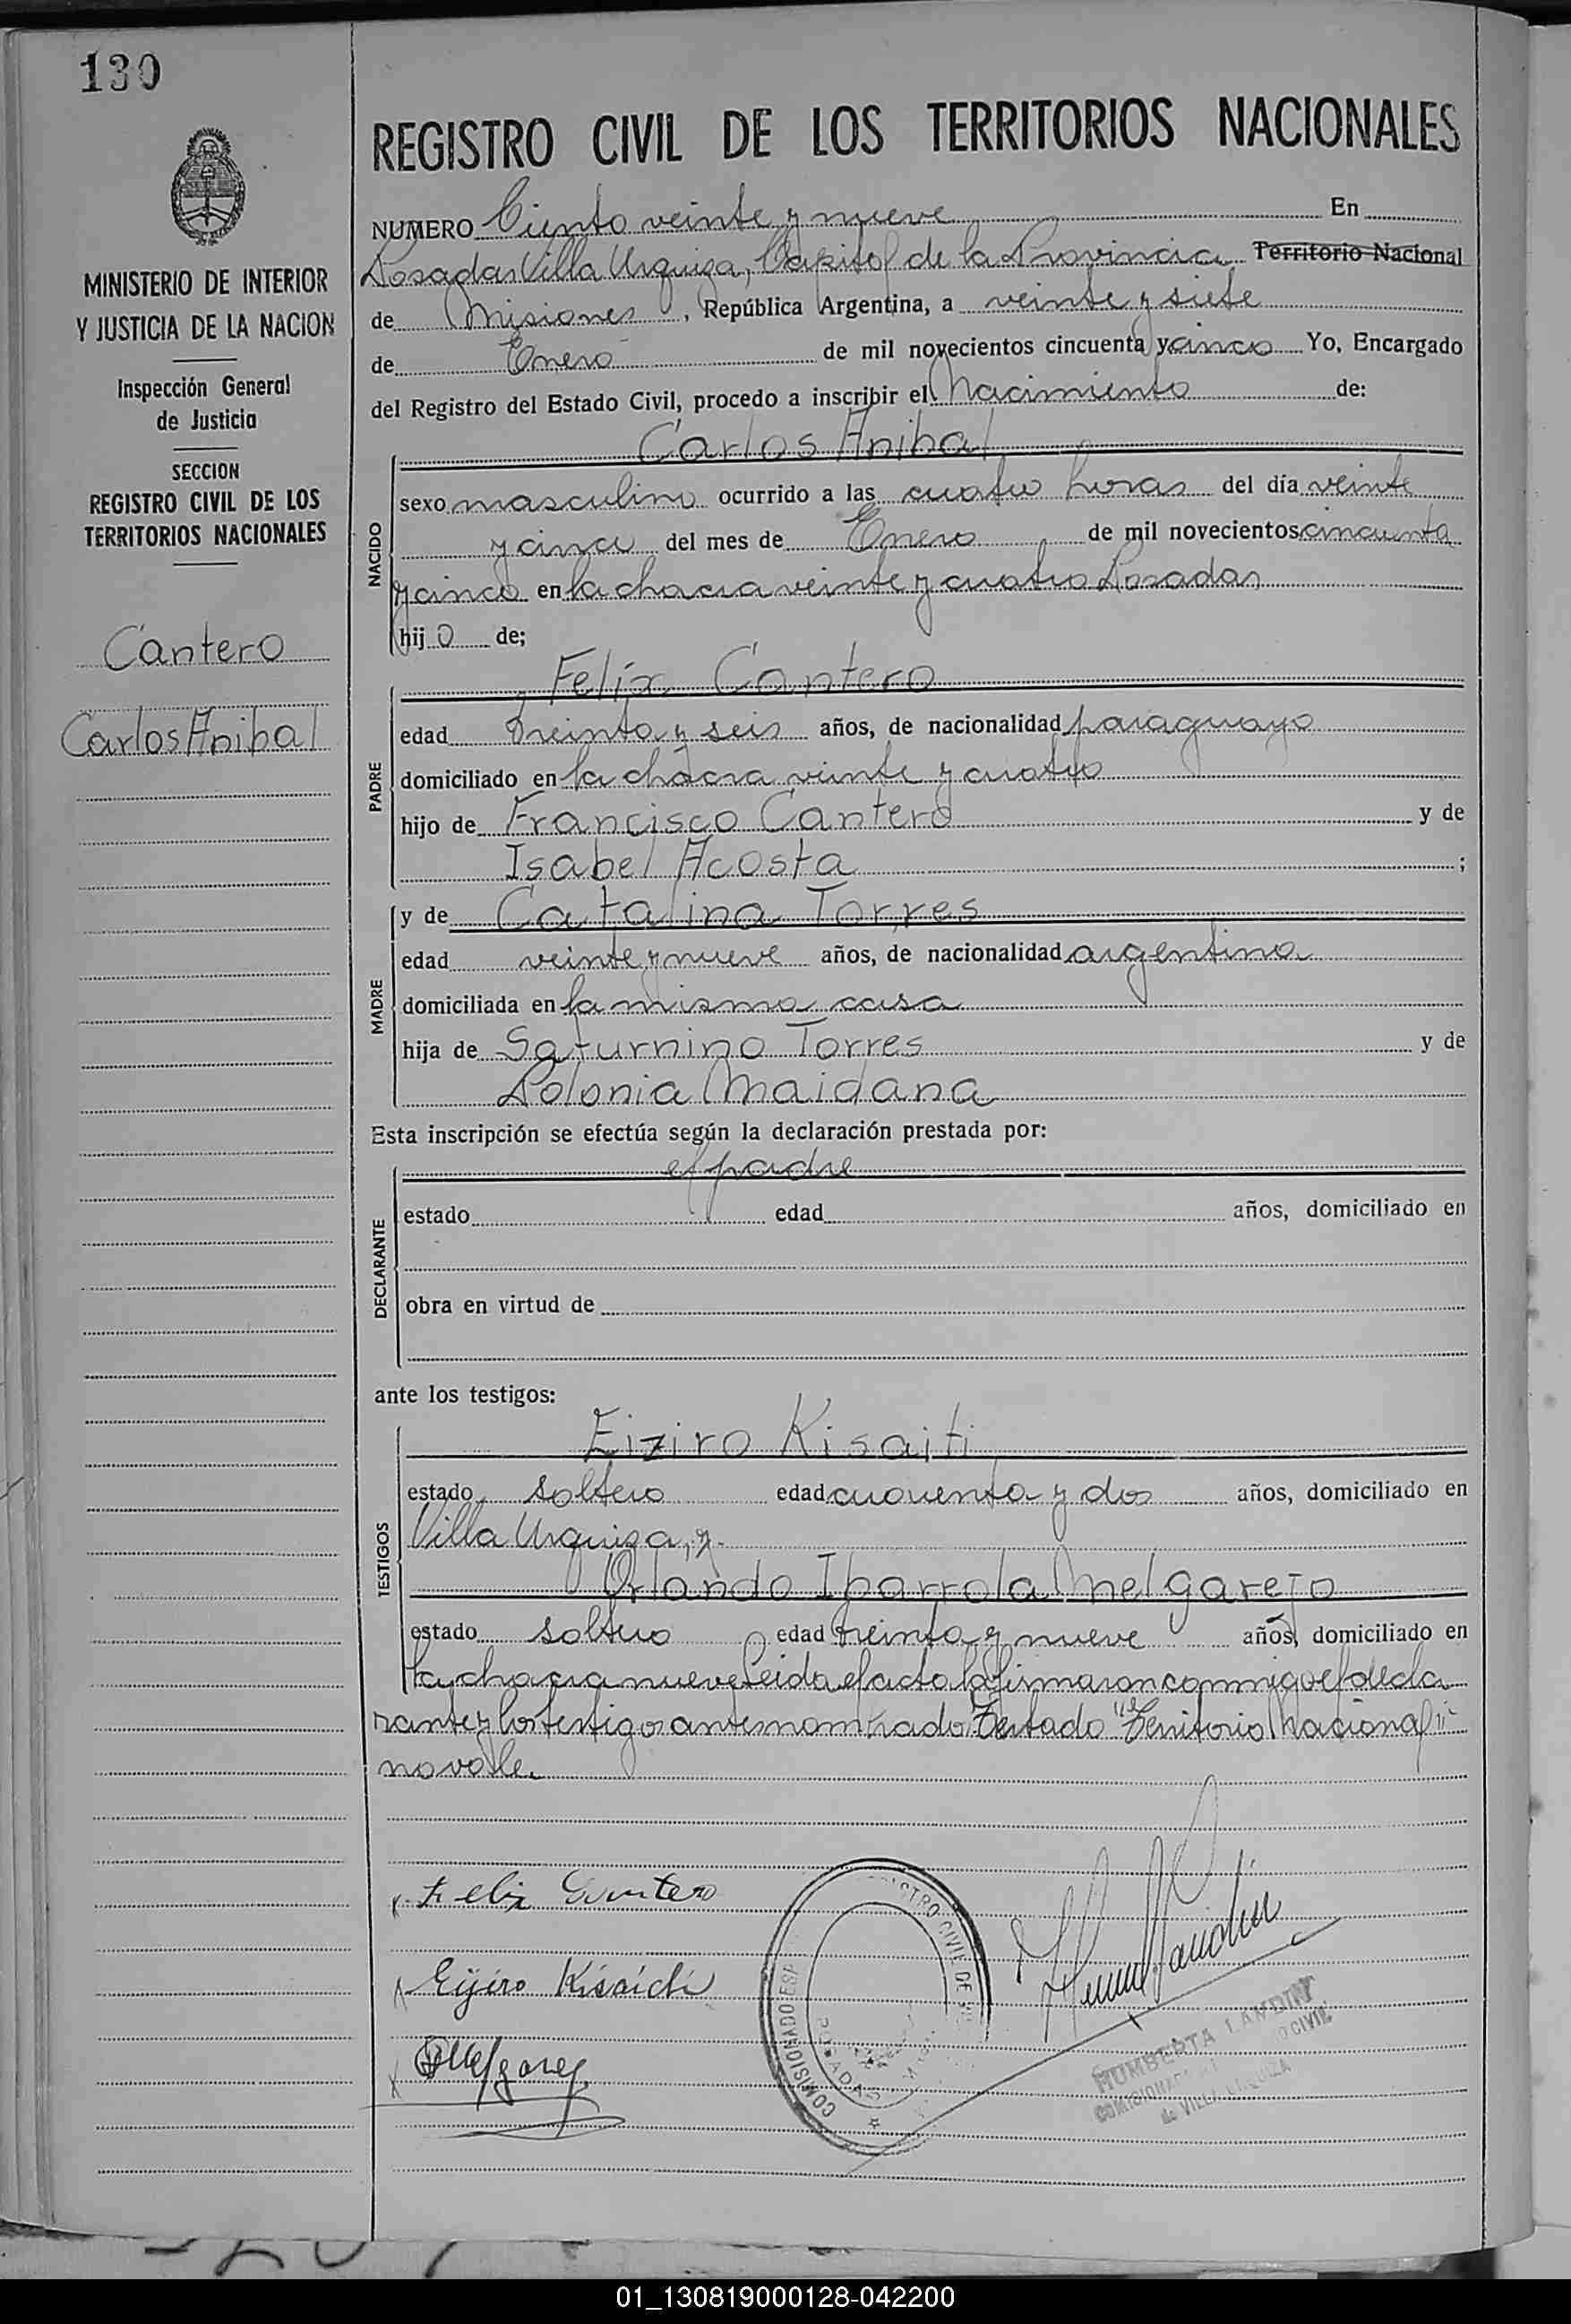 130
MINISTERIO DE INTERIOR
Y JUSTICIA DE LA NACION
Inspección General
de Justicia
SECCION
REGISTRO CIVIL DE LOS
TERRITORIOS NACIONALES
Cantero
Carlos Anibal
REGISTRO CIVIL DE LOS TERRITORIOS NACIONALES
NUMERO Ciento veinte y nueve En
Posadas Villa Urquiza, Capital de la Provincia Territorio Nacional
de Misiones, República Argentina, a veinte y siete
de Enero de mil novecientos cincuenta y cinco Yo, Encargado
del Registro del Estado Civil, procedo a inscribir el Nacimiento de:
Carlos Anibal
NACIDO
sexo masculino ocurrido a las cuatro horas del día veinte
y cinco del mes de Enero de mil novecientos cincuenta
y cinco en la chacra veinte y cuatro Posadas
hijo de;
Felix Cantero
PADRE
edad treinta y seis años, de nacionalidad paraguayo
domiciliado en la chacra veinte y cuatro
hijo de Francisco Cantero y de
Isabel Acosta ;
y de Catalina Torres
MADRE
edad veinte y nueve años, de nacionalidad argentina
domiciliada en la misma casa
hija de Saturnino Torres y de
Polonia Maidana
Esta inscripción se efectúa según la declaración prestada por:
el padre
DECLARANTE
estado edad años, domiciliado en
obra en virtud de
ante los testigos:
Eiziro Kisaiti
TESTIGOS
estado soltero edad cuarenta y dos años, domiciliado en
Villa Urquiza, y
Orlando Iparrola Melgarejo
estado soltero edad treinta y nueve años, domiciliado en
la chacra nueve Leida el acta la firmaron conmigo el decla
rante y los testigos antes nombrado Testado "Territorio Nacional"
no vale.
Felix Cantero
Eijiro Kisaichi
OMelgarejo
REGISTRO CIVIL DE
COMISIONADO ESP
POSADAS
HUMBERTA LANDIN
de VILLA URQUIZA
01_130819000128-042200